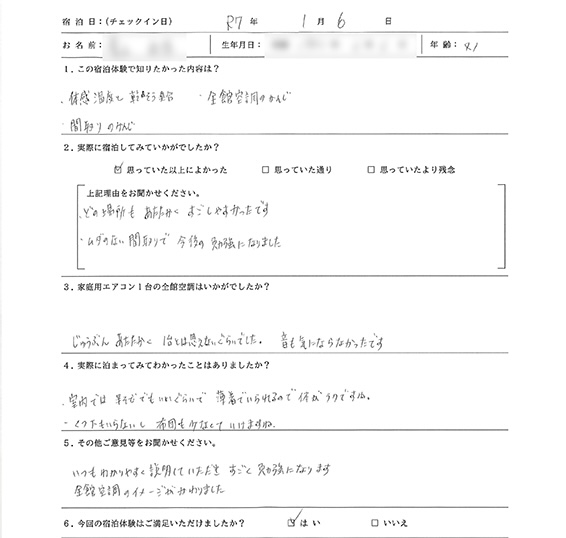 宿泊日:(チェックイン日) R7年 1月 6日
お名前: 生年月日: 年齢:
1. この宿泊体験で知りたかった内容は?
・体感温度と乾そう具合 ・全館空調のかんじ
・間取りのかんじ
2. 実際に宿泊してみていかがでしたか?
☑ 思っていた以上によかった □ 思っていた通り □ 思っていたより残念
上記理由をお聞かせください。
・どの場所も あたたかく すごしやすかったです
・ムダのない間取りで 今後の勉強になりました
3. 家庭用エアコン1台の全館空調はいかがでしたか?
じゅうぶん あたたかく 1台とは思えないぐらいでした。 音も気にならなかったです
4. 実際に泊まってみてわかったことはありましたか?
・室内では 半そででもいいぐらいで 薄着でいられるので 体がラクですね。
・くつ下もいらないし 布団も少なくていけますね。
5. その他ご意見等をお聞かせください。
いつもわかりやすく説明していただき すごく勉強になります
全館空調のイメージがかわりました
6. 今回の宿泊体験はご満足いただけましたか? ☑ はい □ いいえ